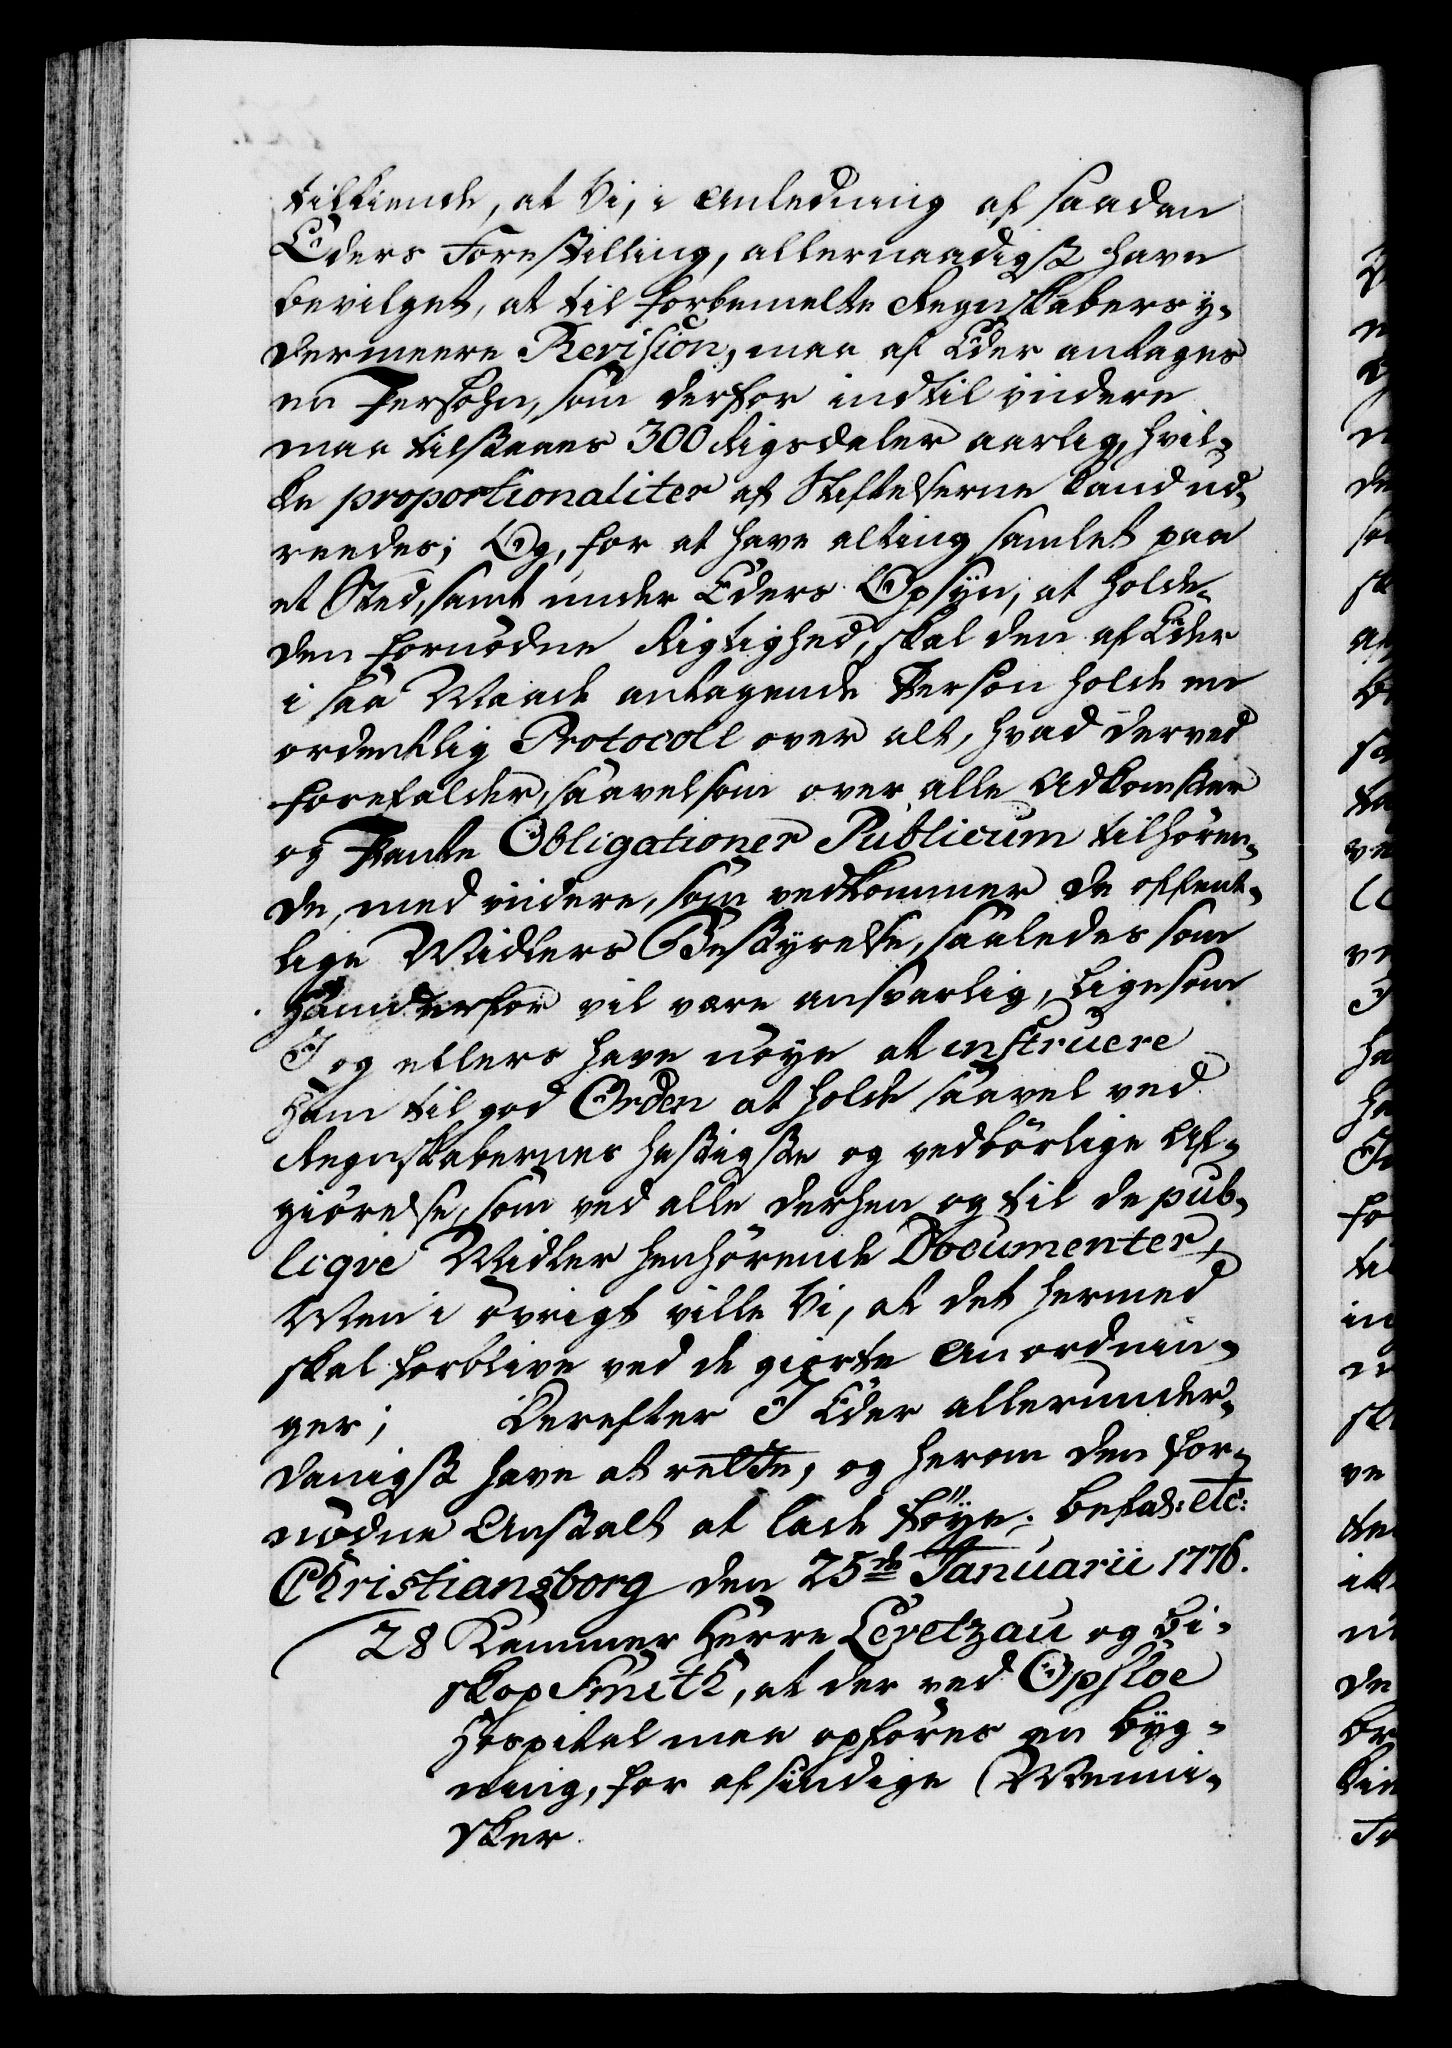 tilkiende, at Vi, i Anledning af saadan
Eders Forestilling, allernaadigst have
bevilget, at til forbemelte Regnskabers y-
dermeere Revision, maa af Eder antages
en Persohn, som derfor indtil videre
maa tilstaaes 300 Rigsdaler aarlig, hvil-
ke proportionaliter af Stiftelserne kand ud-
reedes; Og, for at have alting samlet paa
et Sted, samt under Eders Opsyn, at holde
den fornødne Rigtighed, skal den af Eder
i saa Maade antagende Person holde en
ordentlig Protocoll over alt, hvad derved
forefalder, saavelsom over alle Adkomster
og Pante Obligationer Publicum tilhøren-
de, med videre, som vedkommer de offent-
lige Midlers Bestyrelse, saaledes som
Hand derfor vil være ansvarlig, ligesom
I og ellers have nøye at instruere
Ham til god Orden at holde saavel ved
Regnskabernes hastigste og vedbørlige Af-
giørelse, som ved alle derhen og til de pub-
liqve Midler henhørende Documenter,
Men i øvrigt ville Vi, at det hermed
skal forblive ved de giorte Anordnin-
ger; Derefter I Eder allerunder-
danigst have at rette, og herom den for-
nødne Anstalt at lade føye. Befal: etc:
Christiansborg den 25de Januarii 1776.
28 Kammer Herre Levetzau og Bi-
skop Smith, at der ved Opsloe
Hospital maa opføres en Byg-
ning, for afsindige Menni-
sker.